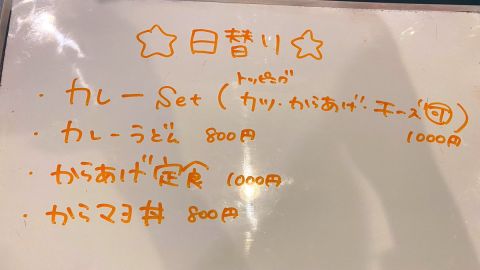 ☆日替り☆
トッピング
・カレーSet(カツ・からあげ・チーズ可) 1000円
・カレーうどん 800円
・からあげ定食 1000円
・からマヨ丼 800円